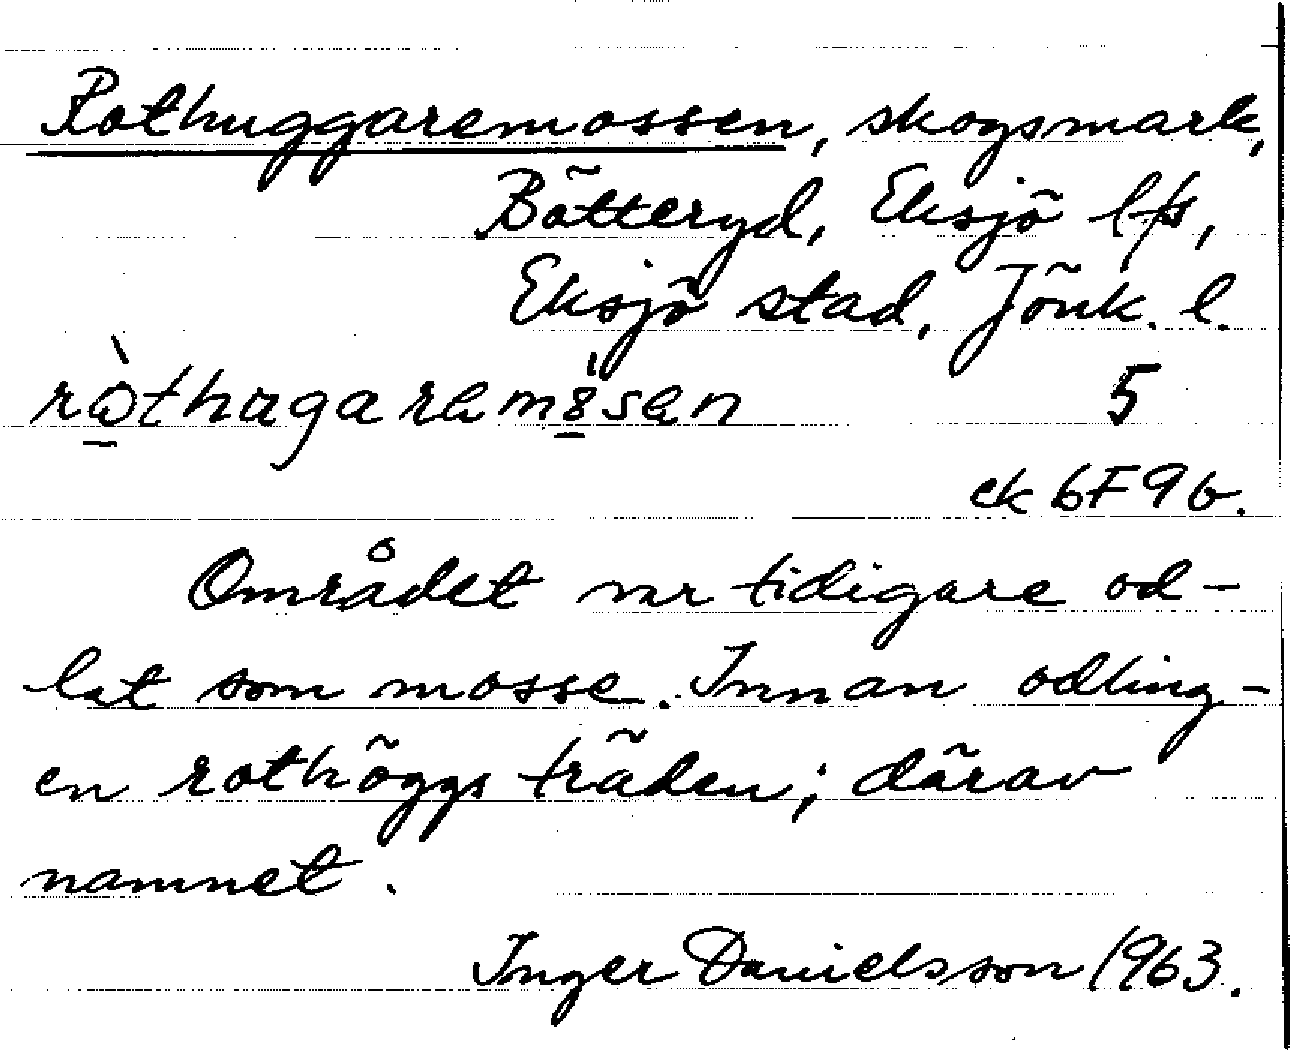 Rothuggaremossen, skogsmark,
Bätteryd, Eksjö lfs,
Eksjö stad, Jönk. l.
5
ek 6F9b.
Området var tidigare od-
lat som mosse. Innan odling-
en rothöggs träden; därav
namnet.
Inger Danielsson 1963.